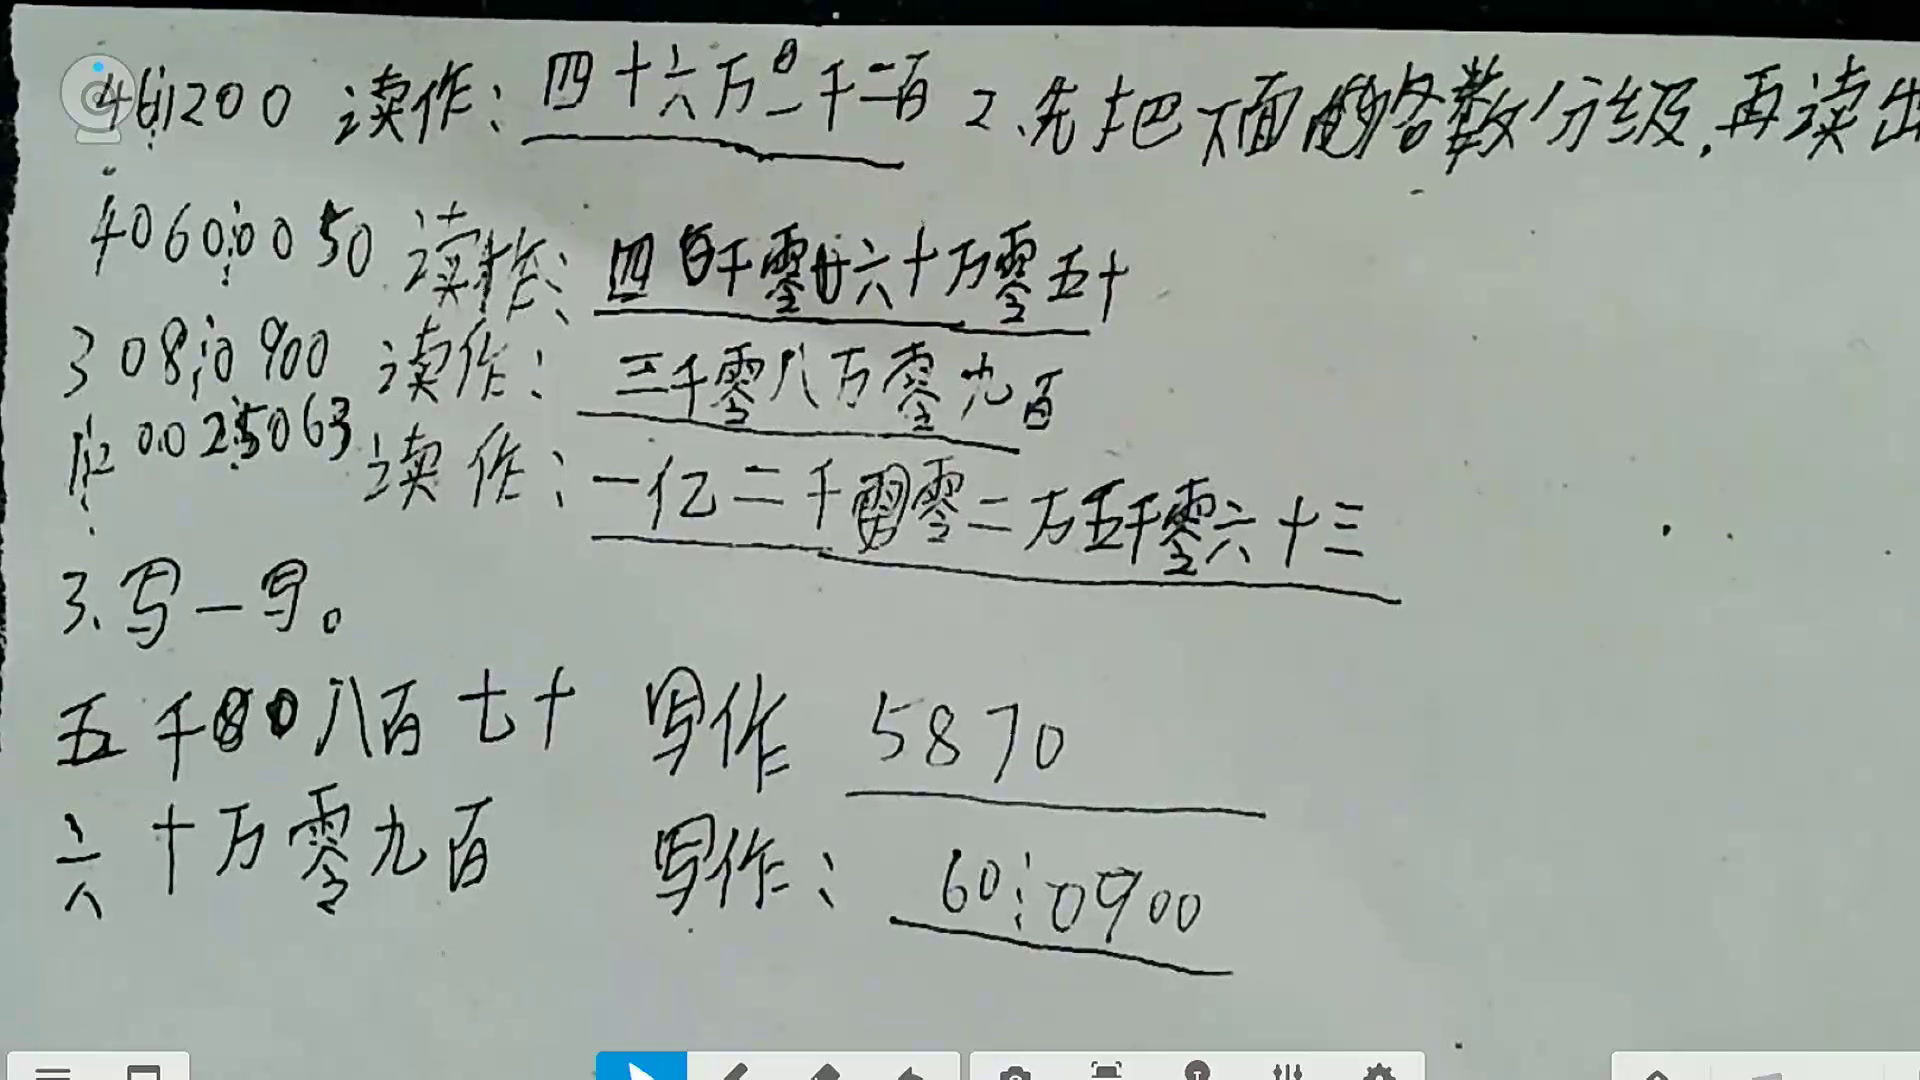 461200 读作：四十六万一千二百 2、先把下面的各数分级，再读出
40600050 读作：四千零六十万零五十
3080900 读作：三千零八万零九百
120025063 读作：一亿二千零二万五千零六十三
3、写一写。
五千八百七十 写作 5870
六十万零九百 写作：60┊0900